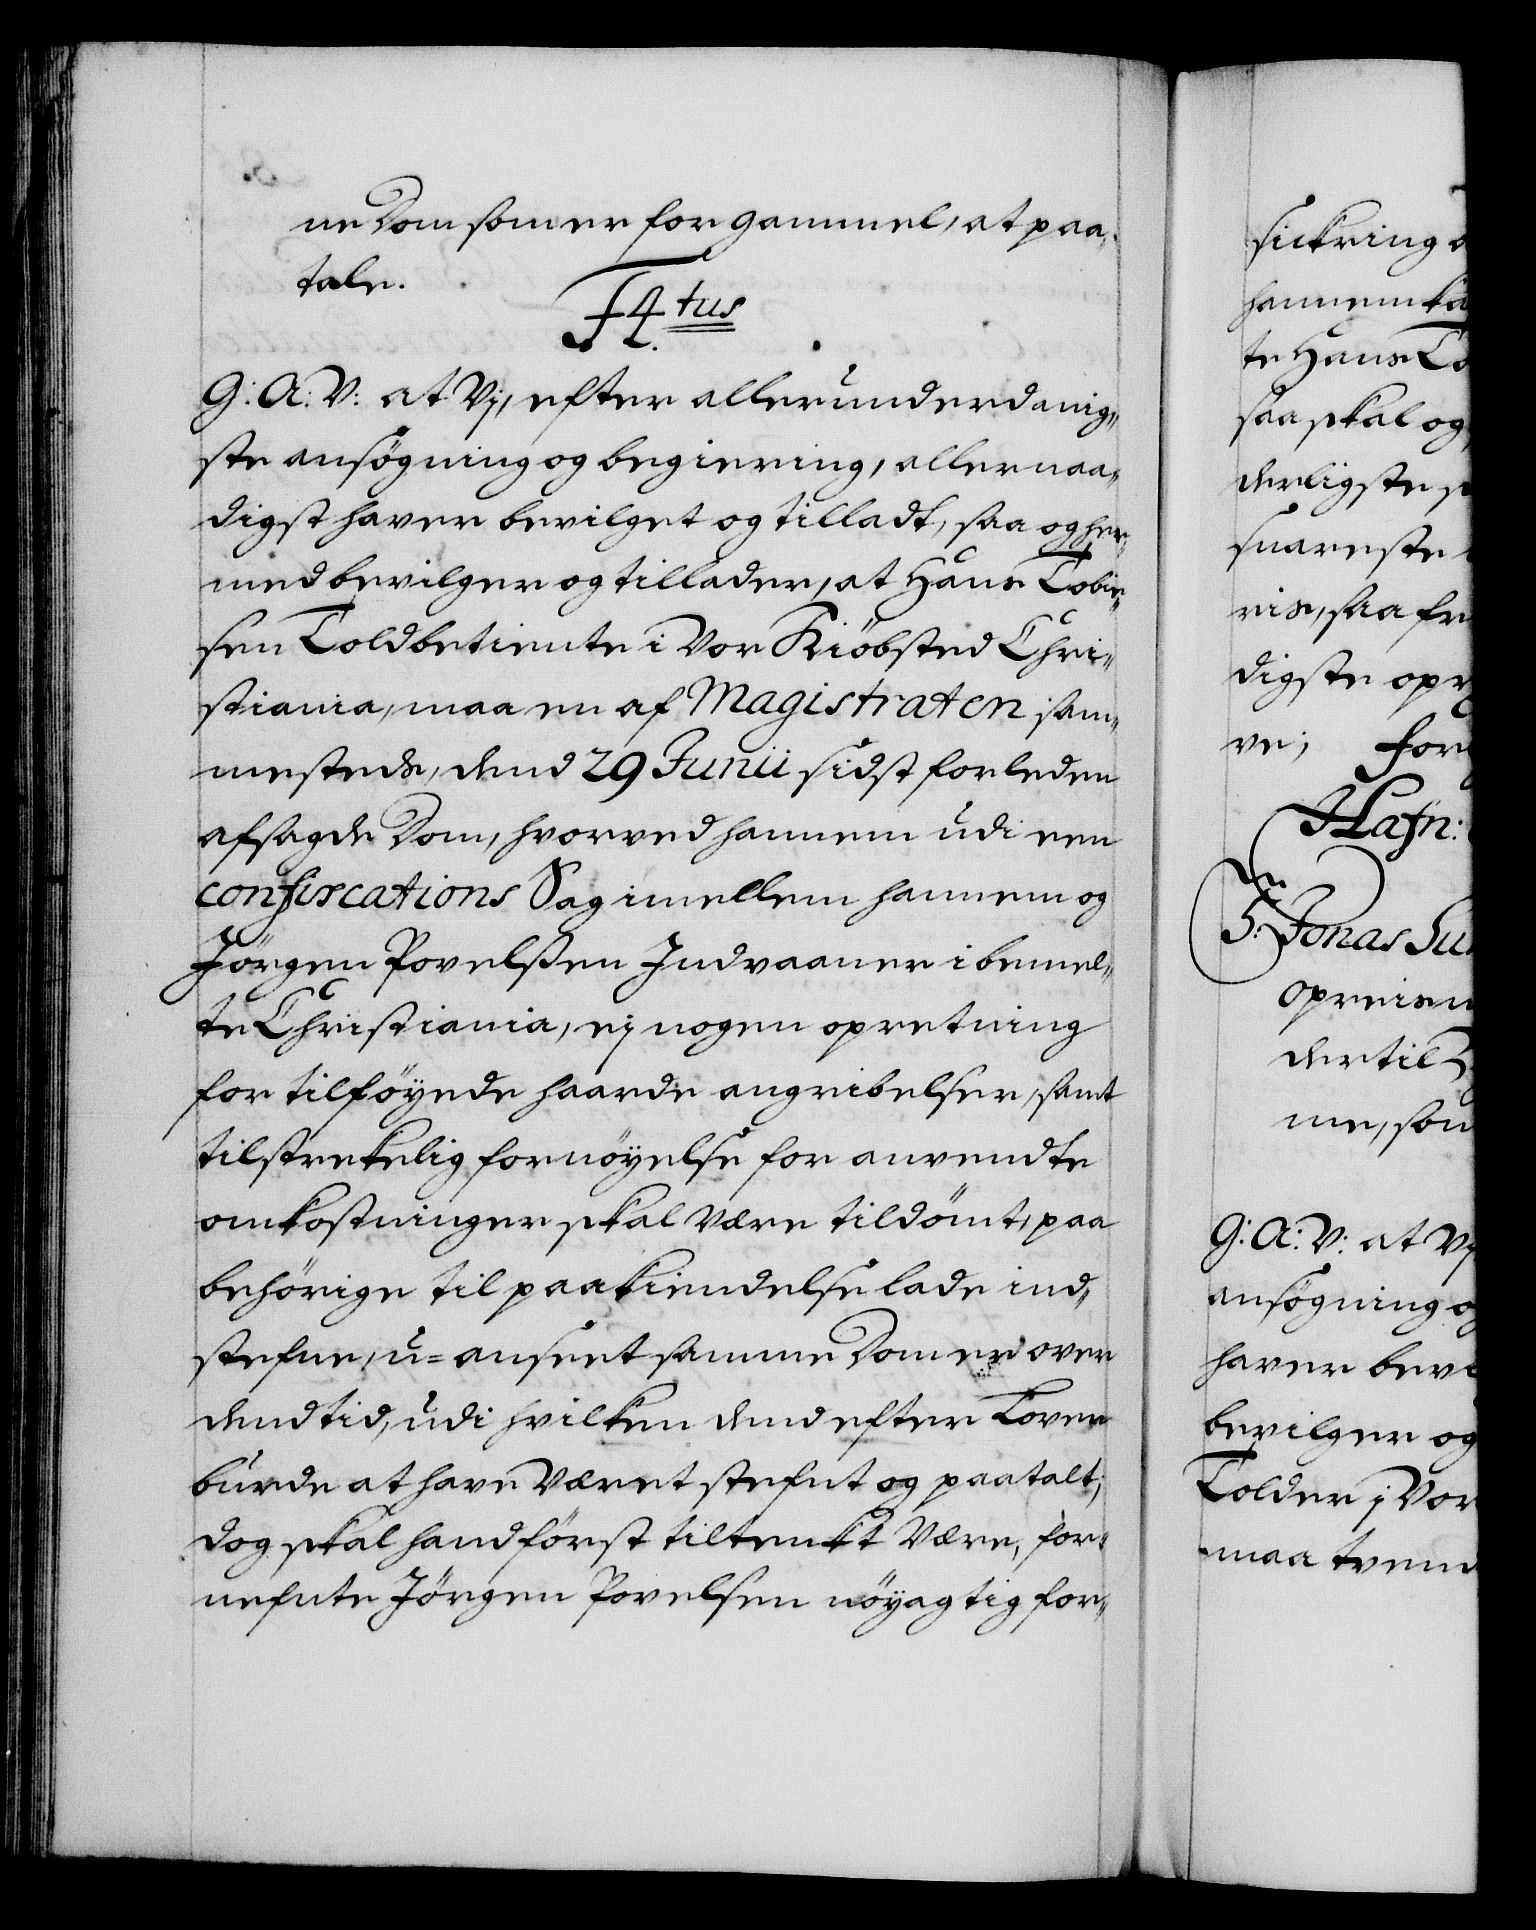 ne Dom som er for gammel, at paa-
tale.
F4.tus
G: A: V: at Vj, efter allerunderdanig-
ste ansøgning og begiering, allernaa-
digst haver bevilget og tilladt, saa og her-
med bevilger og tillader, at Hans Tobie-
sen Toldbetiente i Vor Kiöbsted Chri-
stiania, maa en af Magistraten sam-
mesteds, dend 29 Junii sidst forleden
afsagde Dom, hvorved hannem udi een
confiscations Sag imellem hannem og
Jörgen Povelssen Indvaaner i bemel-
te Christiania, ej nogen opretning
for tilföyede haarde angribelser, samt
tilstrekelig fornöyelse for anvendte
omkostninger skal være tildömt, paa
behörige til paakiendelse lade ind-
stefne, u-anseet samme Dom er over
dend tid, udi hvilken dend efter Loven
burde at have været stefnt og paatalt;
dog skal hand först tiltenkt være, for-
nefnte Jörgen Povelsen nöyagtig for-
sickring
hannem
te Hans To
saa skal og
derligste
snareste
ris, saa fr
digste opr
ve; For
Hafn:
5. Jonas
opreisn
dertil
me, som
G: A: V: at Vj
ansøgning og
haver bevi
bevilger og
Tolder j Vor
maa tvend